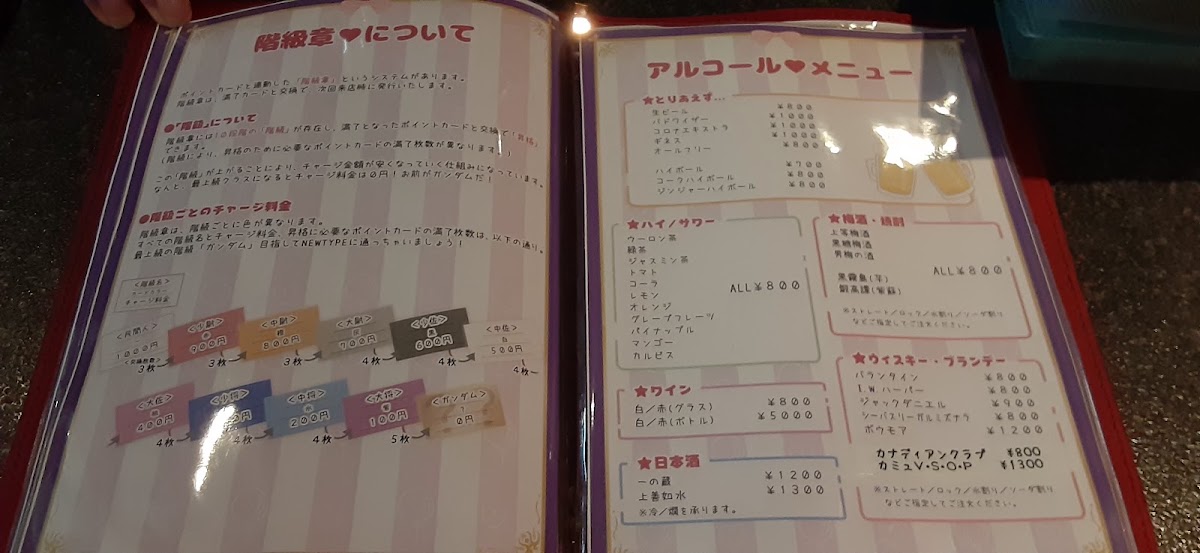 階級章♥について
ポイントカードと連動した「階級章」というシステムがあります。
階級章は、満了カードと交換で、次回来店時に発行いたします。
●「階級」について
階級章には10段階の「階級」が存在し、満了となったポイントカードと交換で「昇格」
できます。
(階級により、昇格のために必要なポイントカードの満了枚数が異なります！)
この「階級」が上がることにより、チャージ金額が安くなっていく仕組みになっています。
なんと、最上級クラスになるとチャージ料金は0円！お前がガンダムだ！
●階級ごとのチャージ料金
階級章は、階級ごとに色が異なります。
すべての階級名とチャージ料金、昇格に必要なポイントカードの満了枚数は、以下の通り。
最上級の階級「ガンダム」目指してNEWTYPEに通っちゃいましょう！
<階級名>
チャージ料金
<民間人>
1000円
3枚
<少尉>
赤
900円
3枚
<中尉>
橙
800円
3枚
<大尉>
灰
700円
4枚
<少佐>
黒
600円
4枚
<中佐>
白
500円
4枚
<大佐>
400円
4枚
<少将>
300円
4枚
<中将>
200円
4枚
<大将>
100円
5枚
<ガンダム>
0円
アルコール♥メニュー
★とりあえず…
生ビール ¥800
バドワイザー ¥1000
コロナエキストラ ¥1000
ギネス ¥1000
オールフリー ¥800
ハイボール ¥700
コークハイボール ¥800
ジンジャーハイボール ¥800
★ハイ/サワー
ウーロン茶
緑茶
ジャスミン茶
トマト
コーラ
レモン
オレンジ
グレープフルーツ
パイナップル
マンゴー
カルピス
ALL¥800
★ワイン
白/赤(グラス) ¥800
白/赤(ボトル) ¥5000
★日本酒
一の蔵 ¥1200
上善如水 ¥1300
※冷/燗を承ります。
★梅酒・焼酎
上等梅酒
黒糖梅酒
男梅の酒
黒霧島(芋)
鍛高譚(紫蘇)
ALL¥800
※ストレート/ロック/水割り/ソーダ割り
などご指定してご注文ください。
★ウイスキー・ブランデー
バランタイン ¥800
I.W.ハーパー ¥800
ジャックダニエル ¥900
シーバスリーガルミズナラ ¥800
ボウモア ¥1200
カナディアンクラブ ¥800
カミュV・S・O・P ¥1300
※ストレート/ロック/水割り/ソーダ割り
などご指定してご注文ください。